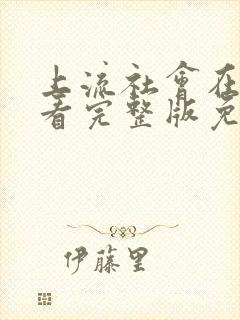 上流社會在
看完整版免
伊藤里